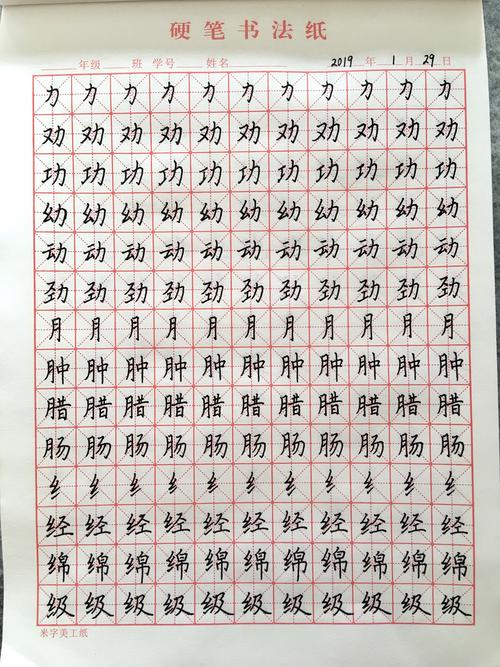 硬笔书法纸
年级 班 学号 姓名 2019 年 1 月 29 日
力 力 力 力 力 力 力 力 力 力 力
劝 劝 劝 劝 劝 劝 劝 劝 劝 劝 劝
功 功 功 功 功 功 功 功 功 功 功
幼 幼 幼 幼 幼 幼 幼 幼 幼 幼 幼
动 动 动 动 动 动 动 动 动 动 动
劲 劲 劲 劲 劲 劲 劲 劲 劲 劲 劲
月 月 月 月 月 月 月 月 月 月 月
肿 肿 肿 肿 肿 肿 肿 肿 肿 肿 肿
腊 腊 腊 腊 腊 腊 腊 腊 腊 腊 腊
肠 肠 肠 肠 肠 肠 肠 肠 肠 肠 肠
纟 纟 纟 纟 纟 纟 纟 纟 纟 纟 纟
经 经 经 经 经 经 经 经 经 经 经
绵 绵 绵 绵 绵 绵 绵 绵 绵 绵 绵
级 级 级 级 级 级 级 级 级 级 级
米字美工纸